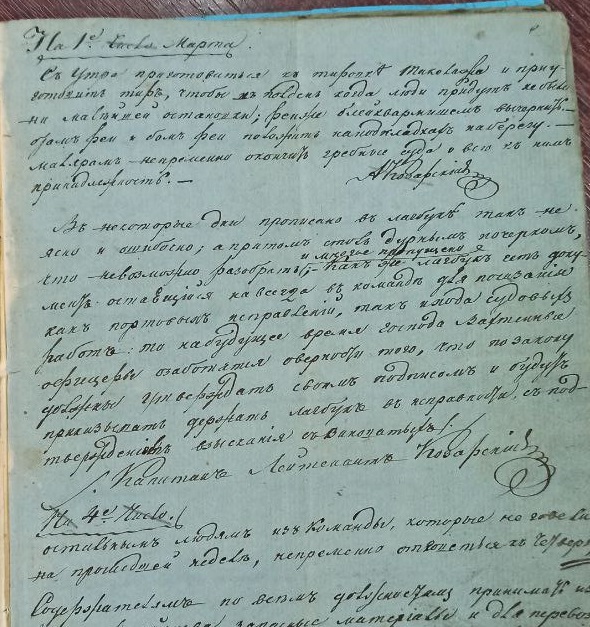 На 1е число Марта.
Съ утра приготовиться къ тировкѣ такелажа и приу-
готовить тиръ, чтобы къ полдень когда люди придутъ не было
ни малѣйшей остановки;
положить на подкладкахъ на берегу. —
малярамъ непременно окончить гребные суда и всю къ нимъ
принадлежность. —
АКоварскій
Въ некоторые дни прописано въ лагбукѣ такъ не-
ясно и ошибочно; а притомъ столь дурнымъ почеркомъ,
и многое пропущено
что невозможно разобрать; — какъ лагбукъ есть доку-
ментъ оставщійся навсегда въ командѣ для показанія
какъ портовыхъ исправленій, такъ и хода судовыхъ
работъ: то на будущее время господа Вахтенные
офицеры озаботятся оверности того, что по закону
должны утверждать своимъ подписомъ и будутъ
приказывать держать лагбукъ въ исправности, съ под-
твержденіемъ взысканія съ виноватыхъ.
Капитанъ Лейтенантъ Коварскій
На 4е число.
остальнымъ людямъ изъ команды, которые не говели
на прошедшей неделѣ, непременно къ
Содержателямъ по всемъ должностямъ принимать
запасные матеріалы и для